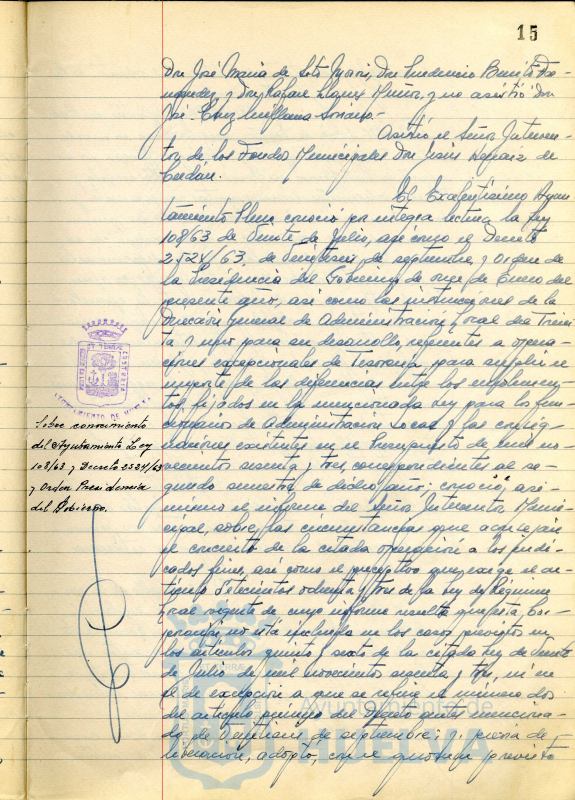 15
Don José María de Soto Don Prudencio Benito
y Don Rafael Muñoz, y no asistió Don
José
Asistió el Señor Interven-
tor de los Fondos Municipales Don Jesús de
El Excelentísimo Ayun-
tamiento Pleno conoció por íntegra lectura la Ley
108/63 de Veinte de Julio, así como el Decreto
2.524/63, de de septiembre, y Orden de
la Presidencia del Gobierno de once de Enero del
presente año, así como las instrucciones de la
Dirección General de Administración Local del Trein-
ta y uno para su desarrollo, referentes a opera-
ciones excepcionales de Tesorería para suplir el
importe de las diferencias entre los emolumen-
tos fijados en la mencionada Ley para los fun-
cionarios de Administración Local y las consig-
naciones existentes en el Presupuesto de mil no-
vecientos sesenta y tres, correspondientes al se-
gundo semestre de dicho año; conoció, asi-
mismo el informe del Señor Interventor Muni-
cipal, sobre las circunstancias que aconsejan
el concierto de la citada operación a los indi-
cados fines, así como el preceptivo que exige el ar-
tículo Setecientos ochenta y tres de la Ley de Régimen
Local vigente de cuyo informe resulta que esta Cor-
poración no está incluida en los casos previstos en
los artículos quinto y sexto de la citada Ley de Veinte
de Julio de mil novecientos sesenta y tres, ni en
el de excepción a que se refiere el número dos
del artículo primero del Decreto antes menciona-
do de de septiembre; y previa de-
liberación, adoptó, con el quórum previsto
Sobre conocimiento
del Ayuntamiento Ley
108/63 y Decreto 2524/63
y Orden Presidencia
del Gobierno.
AYUNTAMIENTO DE HUELVA
Ayuntamiento de
HUELVA